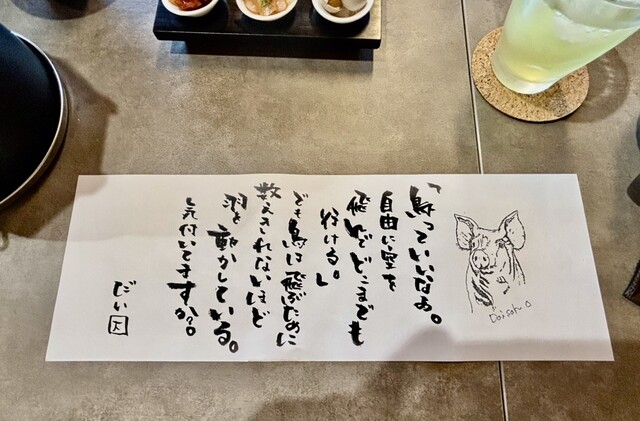 「鳥っていいなぁ。
自由に空を
飛んでどこまでも
行ける。」
でも鳥は飛ぶために
数えきれないほど
羽を動かしている。
気付いてますか?。
だい